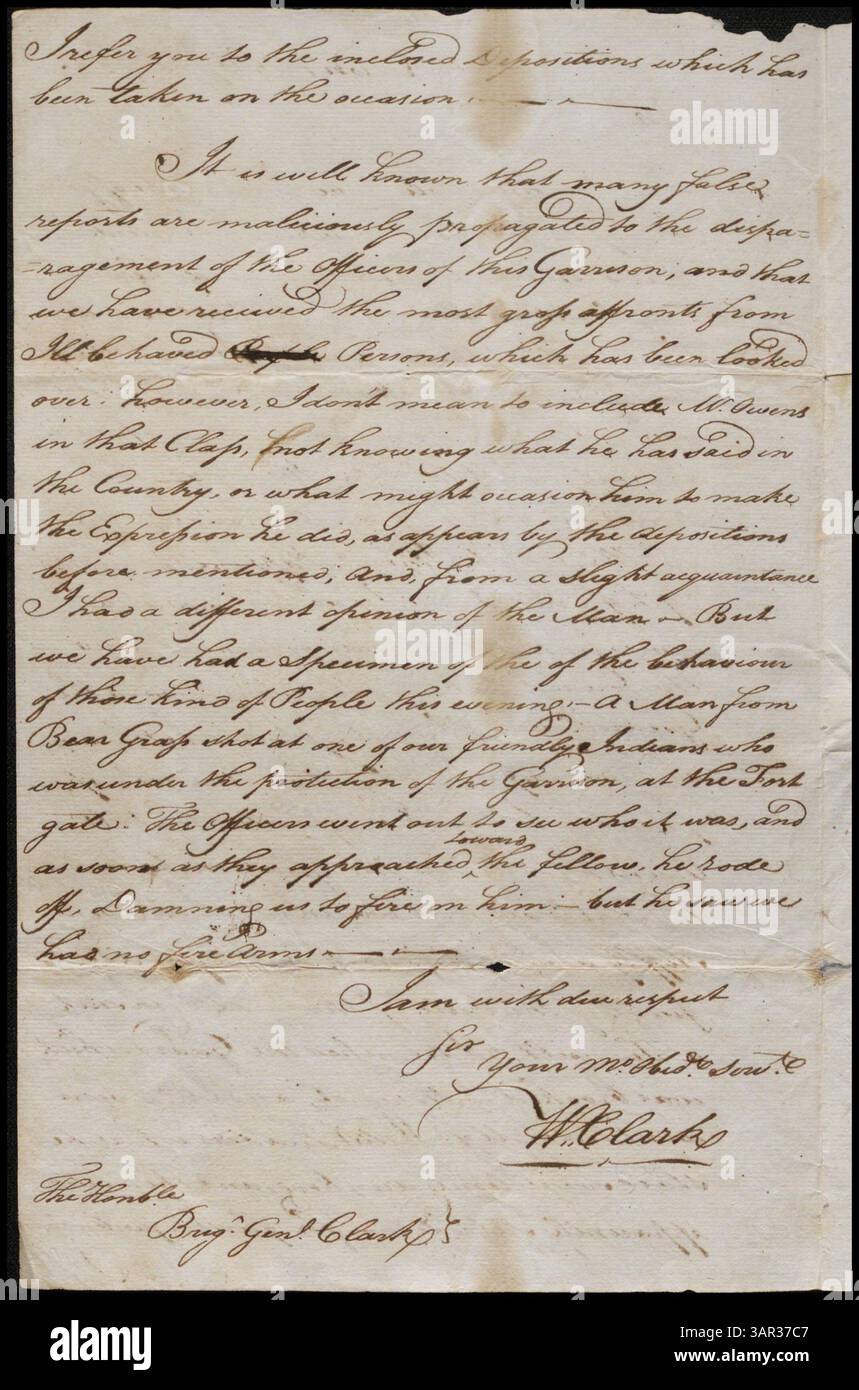 I refer you to the inclosed Depositions which has
been taken on the occasion —
It is well known that many false
reports are maliciously propagated to the dispa=
=ragement of the Officers of this Garrison; and that
we have received the most gross affronts from
Ill behaved People Persons, which has been looked
over: however, I don't mean to include Mr. Owens
in that Class, not knowing what he has said in
the Country, or what might occasion him to make
the Expression he did, as appears by the depositions
before mentioned; and, from a slight acquaintance
I had a different opinion of the Man — But
we have had a Specimen of the of the behaviour
of those kind of People this evening, — A Man from
Bear Grass shot at one of our friendly Indians who
was under the protection of the Garrison, at the Fort
gate: The Officers went out to see who it was, and
as soon as they approached toward the fellow, he rode
off, Damning us to fire on him — but he saw we
had no fire Arms — —
I am with due respect
Sir
Your Mo. Obed.t Serv.t
W. Clark
The Honble
Brig.r Gen.l Clark
alamy
Image ID: 3AR37C7
www.alamy.com